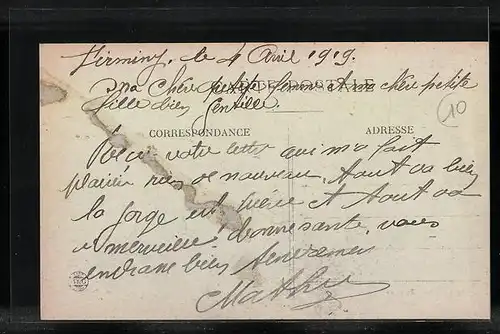 Firminy, le 4 Avril 1919.
CARTE POSTALE
ma chère petite femme et ma chère petite
fille bien gentille.
10
CORRESPONDANCE
ADRESSE
votre lettre qui m'a fait
plaisir rien de nouveau, tout va bien
la forge est et tout va
a merveille bonne santé, vous
bien